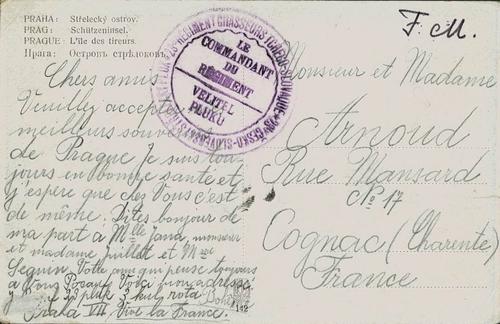 PRAHA: Střelecký ostrov.
PRAG: Schützeninsel.
PRAGUE: L'île des tireurs.
Прага: Островъ стрѣлковъ.
F. M.
LE
COMMANDANT
DU
RÉGIMENT
VELITEL
PLUKU
Chers amis
Veuillez accepter
meilleurs souve
de Prague Je suis tou-
jours en bonne santé et
j'espère que chez Vous c'est
de même. Dites bonjour de
ma part à Mlle Jana, monsieur
et madame Juillet et Mme
Seguin. Votre ami qui pense toujours
à Vous
Voici mon adresse
33 pluk 3 kul. rota
Praha VII Vive la France.
Monsieur et Madame
Arnoud
Rue Mansard
No 17
Cognac (Charente)
France